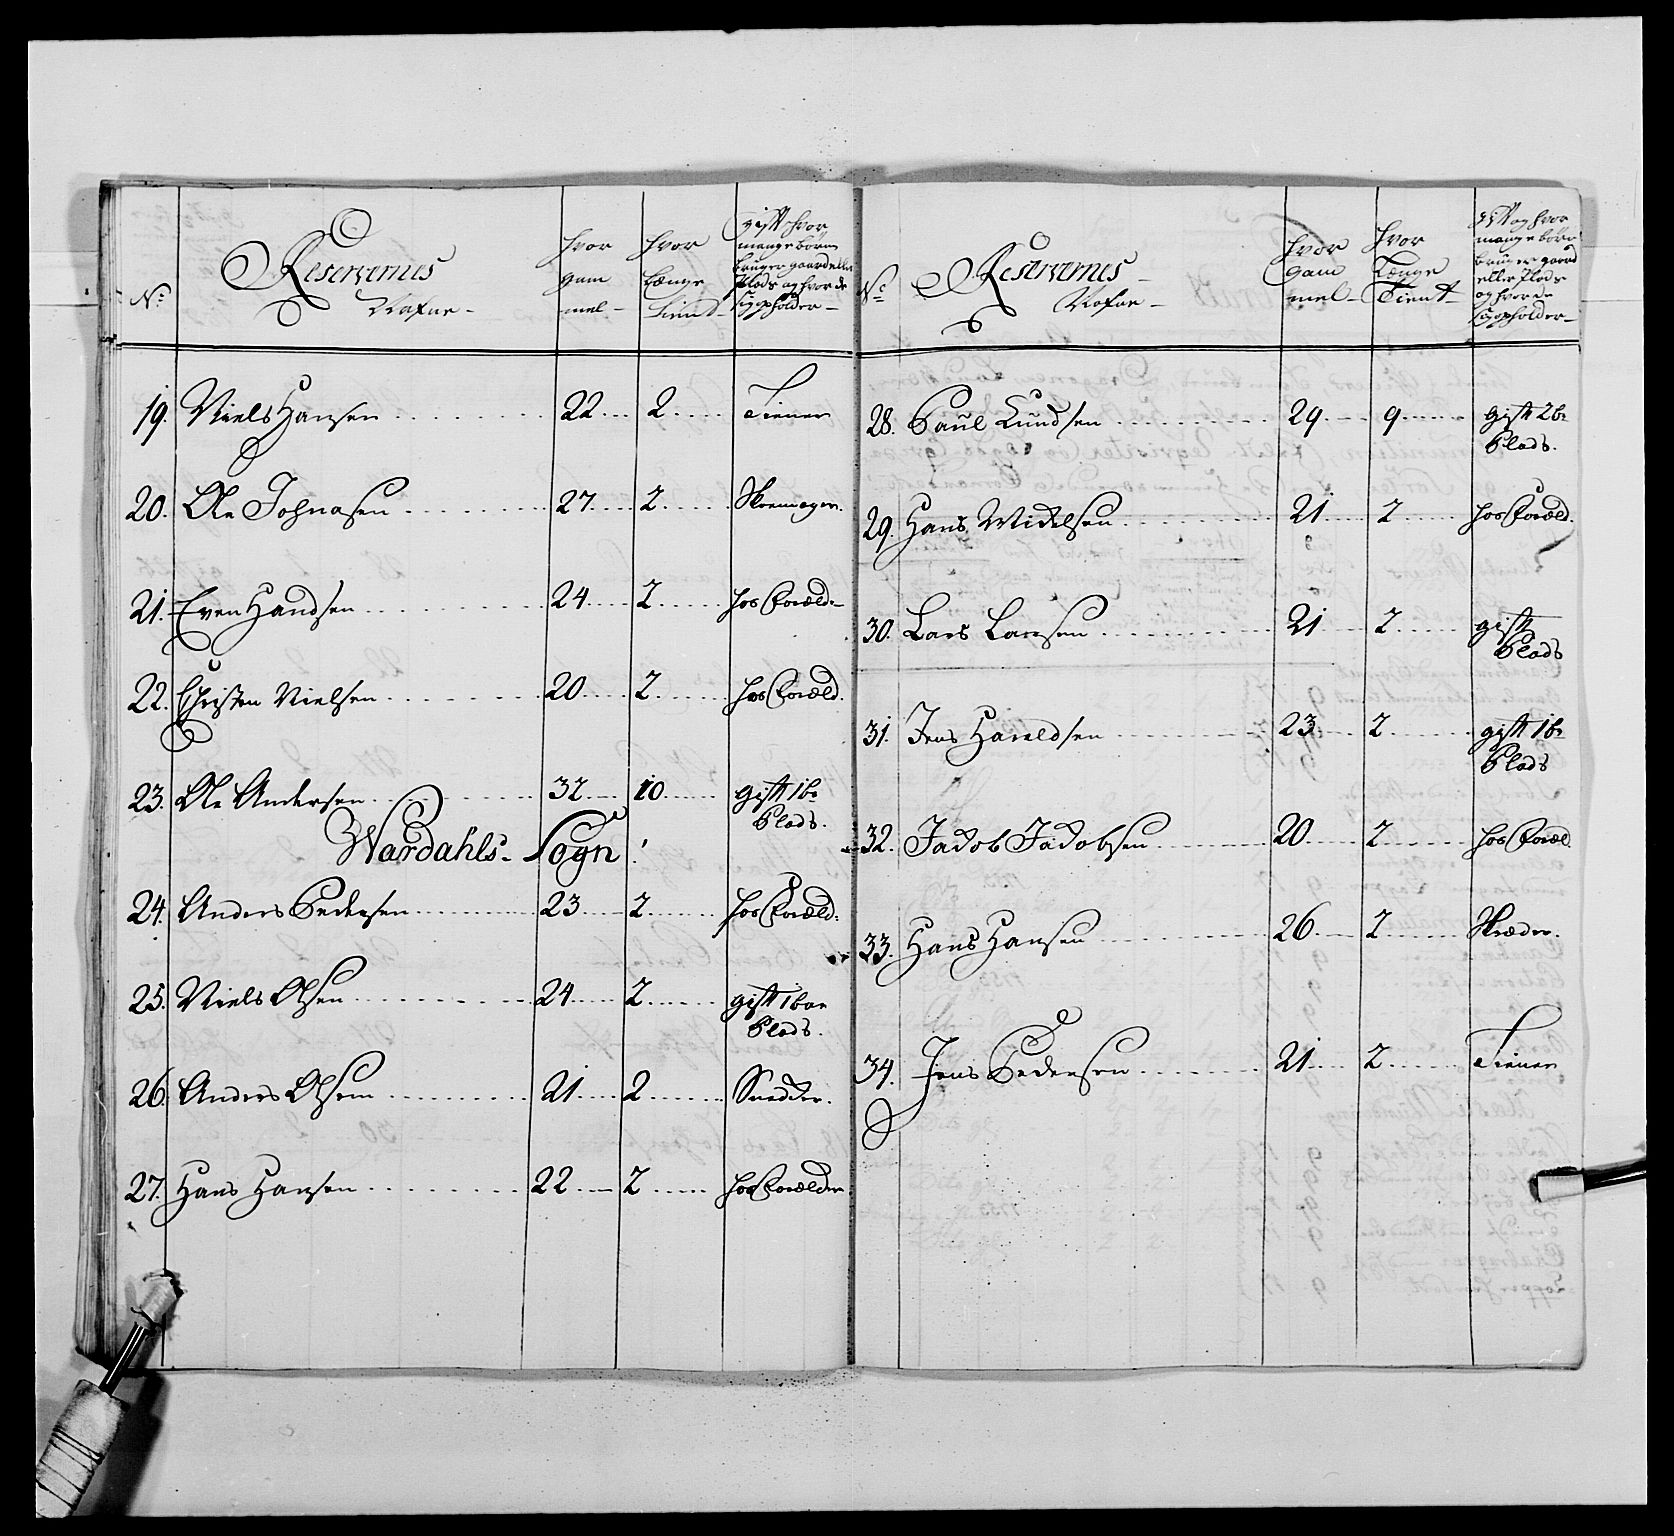 No. Reservernes Nafne - hvor gam mel - hvor længe tient - gift hvor mange børn bruger gaard eller Plads og hvor de sig opholder -
19. Niels Hansen 22 2 Tiener
20. Ole Johnasen 27 2 Skoemager.
21. Even Handsen 24 2 hos Foræld:
22. Christen Nielsen 20 2 hos Foræld.
23. Ole Andersen 32 10 gift 1 b:
Plads.
Wardahls - Sogn
24. Anders Pedersen 23 2 hos Foræld:
25. Niels Olsen 24 2 gift 1 barn
Plads.
26. Anders Olsen 21 2 Snedker.
27. Hans Hansen 22 2 hos Forælder
No. Reservernes - Nafne - hvor gam mel - hvor Længe Tient - gift og hvor mange børn bruger gaard eller Plads og hvor de sig opholder -
28. Paul Knudsen 29 9 gift 2 b:
Plads.
29. Hans Mickelsen 21 2 hos Foræld.
30. Lars Larsen 21 2 gift
Plads
31. Jens Haraldsen 23 2 gift 1 b:
Plads
32. Jacob Jacobsen 20 2 hos Foræl.
33. Hans Hansen 26 2 Skræder.
34. Jens Pedersen 21 2 Tiener